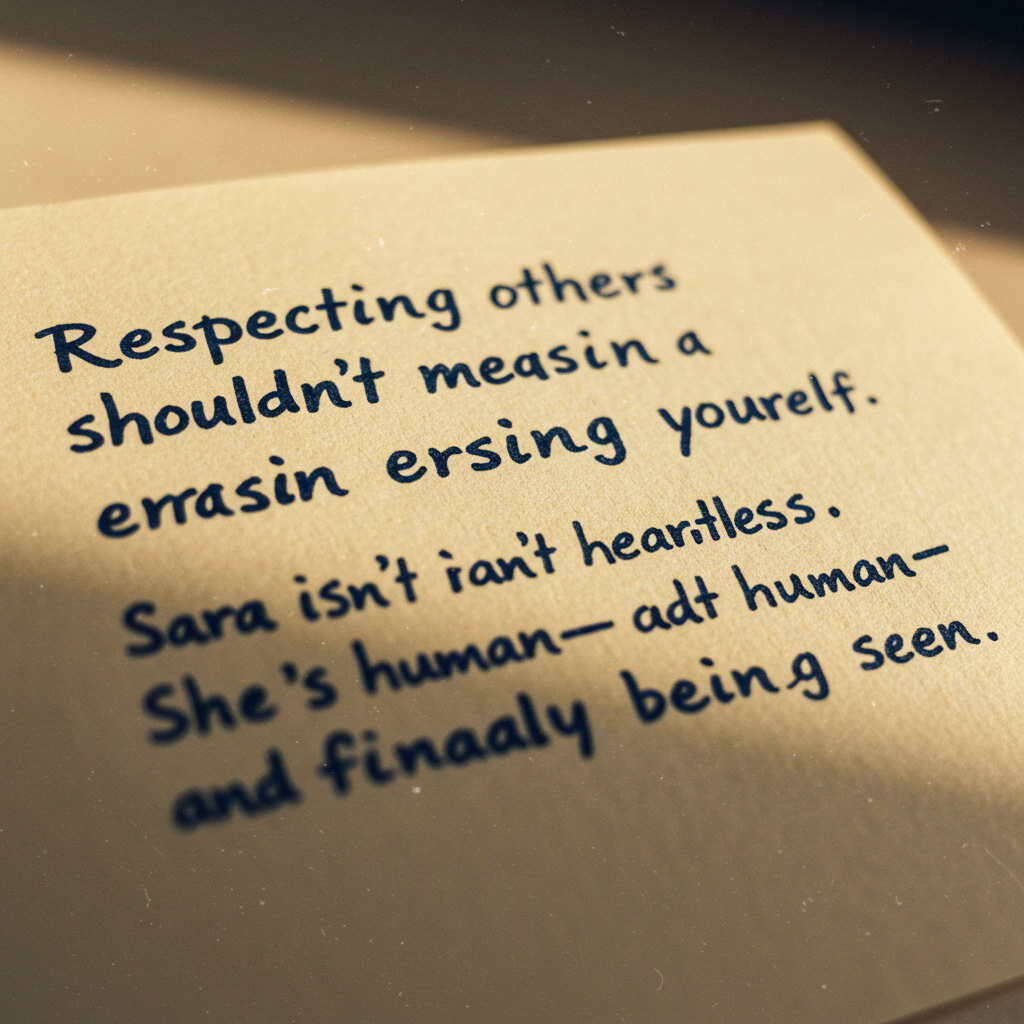 Respecting others
shouldn't measin a
errasin ersing yourelf.
Sara isn't ian't heartless.
She's human— adt human—
and finaaly being seen.